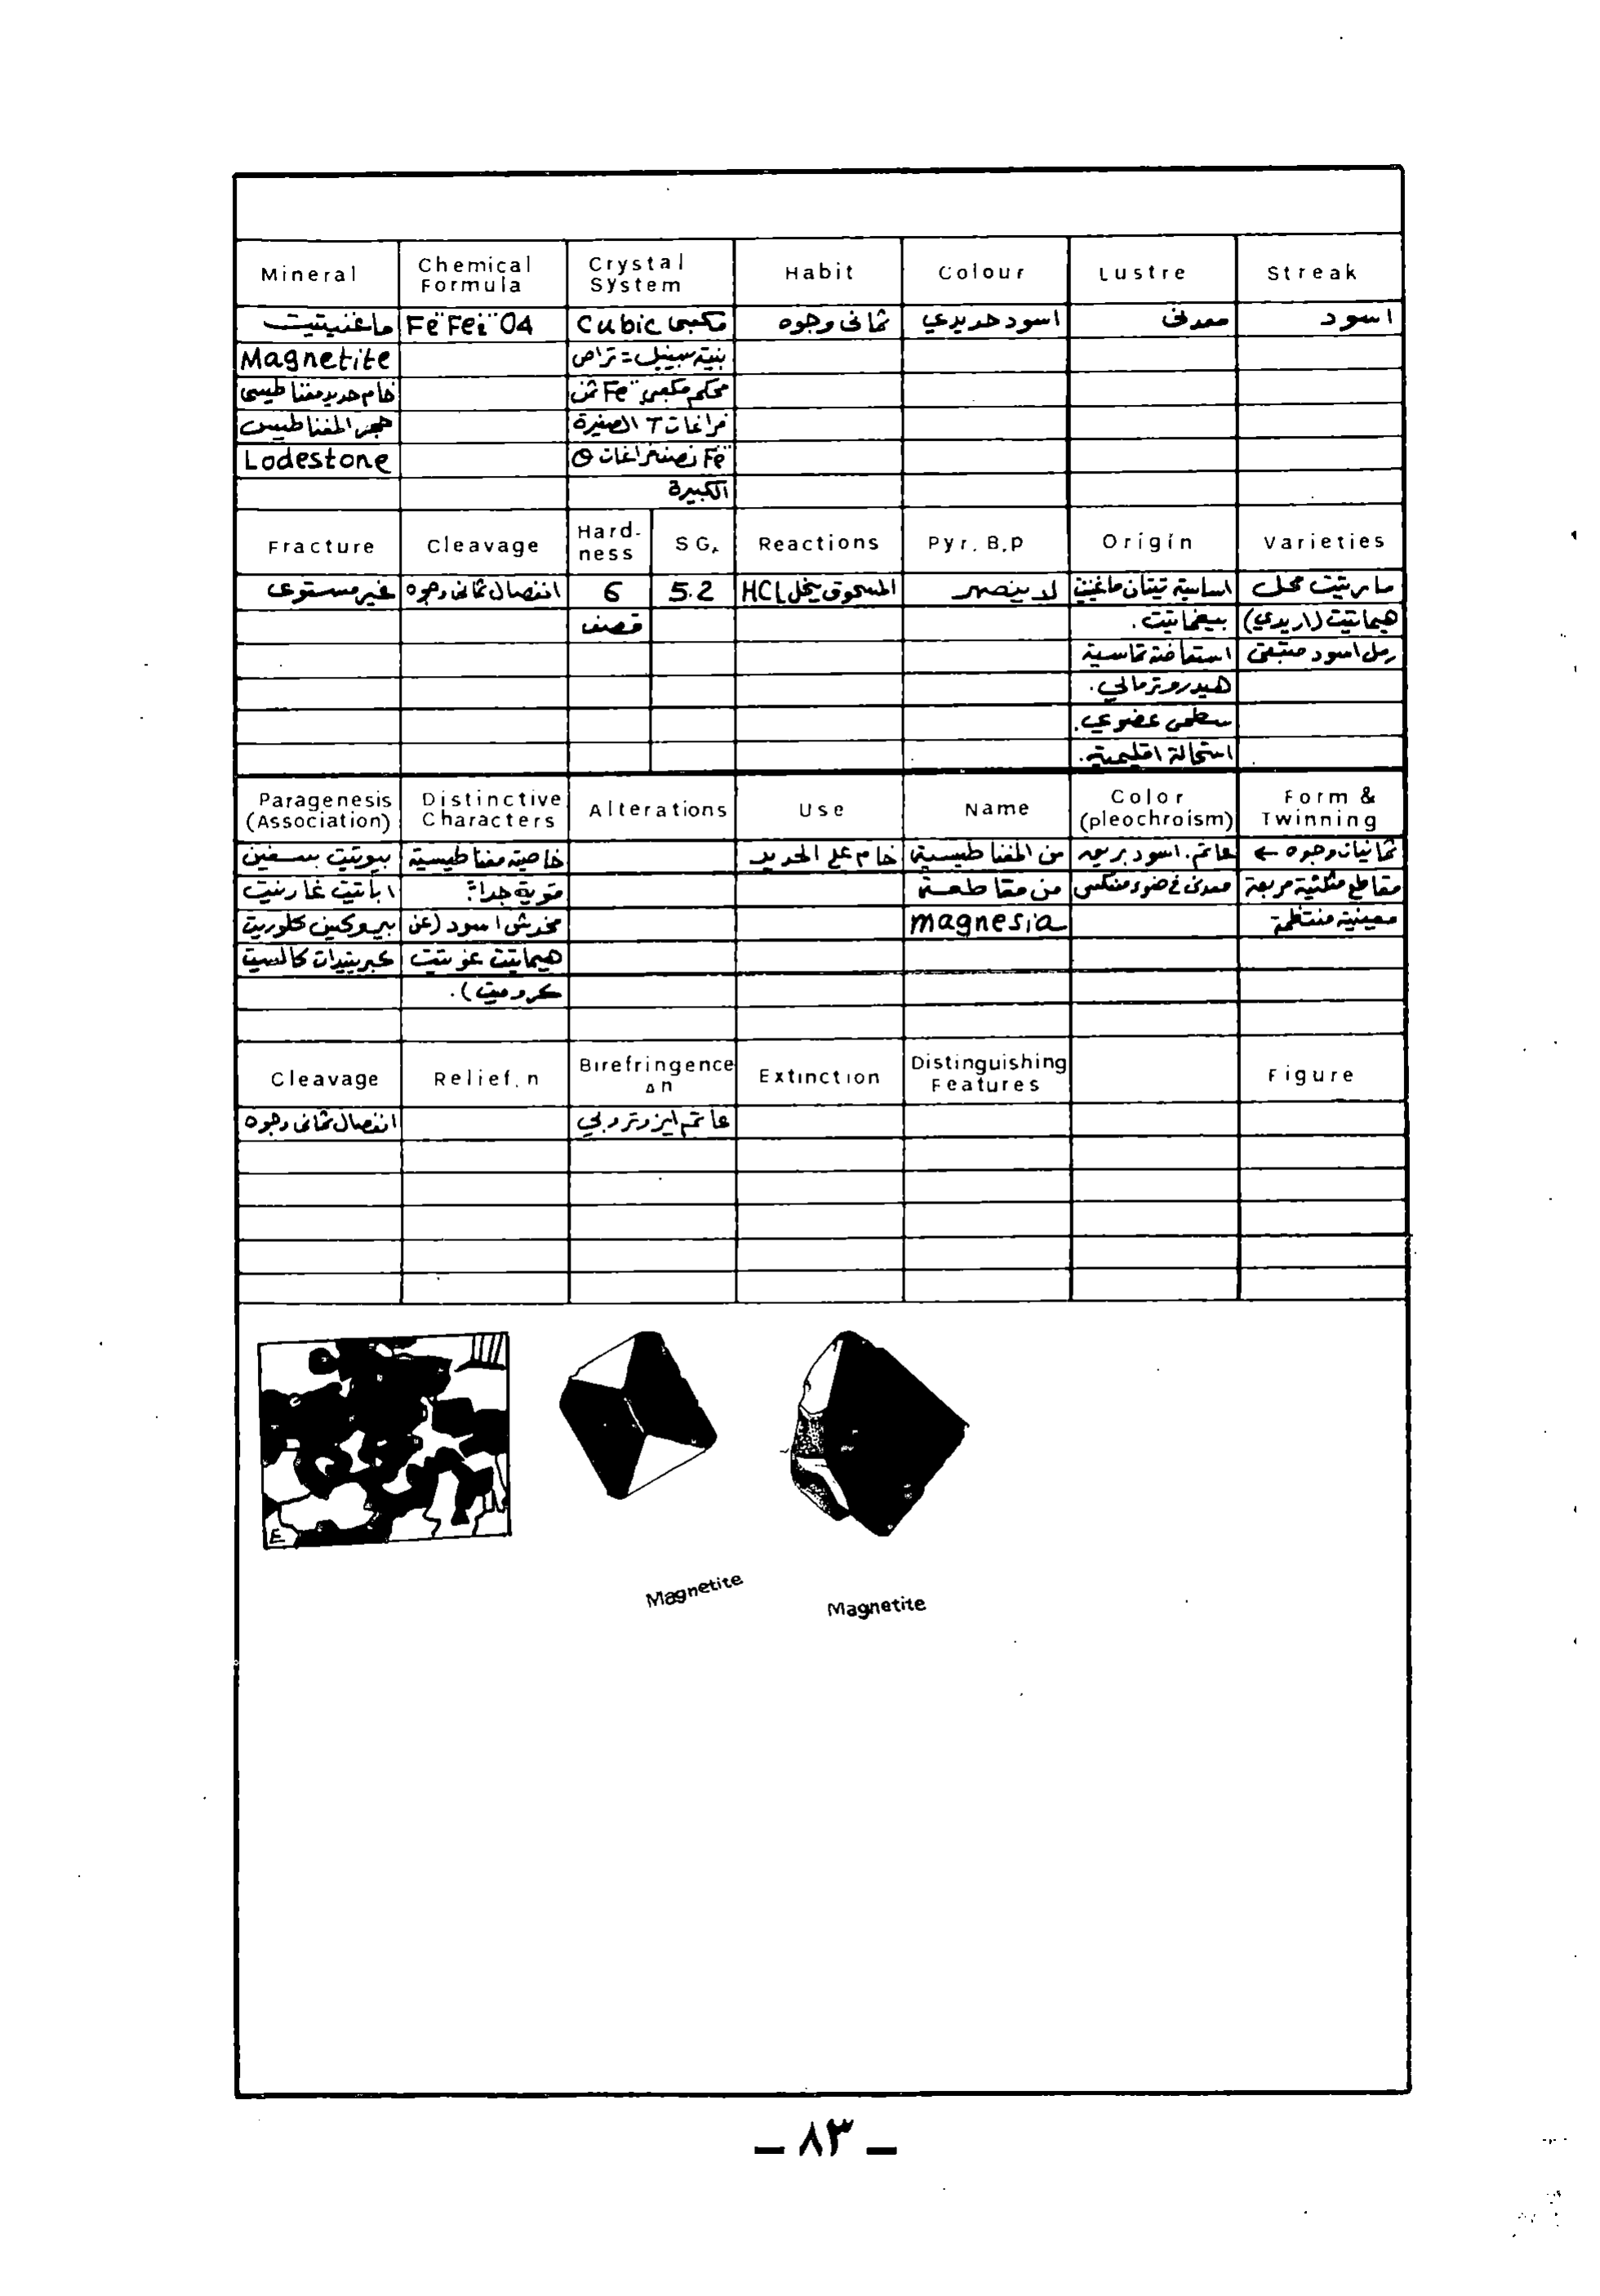 Mineral Chemical Formula Crystal System Habit Colour Lustre Streak
ماغنيتيت Fë Fe₂ O4 Cubic مكعبي ثماني وجوه اسود حديدي معدني اسود
Magnetite بنية سبينيل = تراص
خام حديد مغناطيسي محكم مكعبي Fe
حجر المغناطيس فراغات T الصغيرة
Lodestone Fe نصف فراغات O
الكبيرة
Fracture Cleavage Hard-ness S G. Reactions Pyr. B.p Origin Varieties
غير مستوي انفصال ثماني وجوه 6 5.2 المسحوق ينحل HCl لا ينصهر اساسية تيتان ماغنيتيت مارتيت محل
قصف بيغماتيت. هيماتيت (اريدي)
استحالة تماسية رمل اسود متبقي
هيدروترمالي.
سطحي عضوي.
استحالة اقليمية.
Paragenesis (Association) Distinctive Characters Alterations Use Name Color (pleochroism) Form & Twinning
بيوتيت سفين خاصية مغناطيسية خام على الحديد من المغناطيسية عاتم. اسود بريقه ثمانيات وجوه ←
اباتيت غارنيت قوية جداً؛ من مقاطعة معدني في ضوء منعكس مقاطع مثلثية مربعة
بيروكسين كلوريت مخدش اسود (عن magnesia معينية منتظمة
كبريتيدات كالسيت هيماتيت غوتيت
كروميت).
Cleavage Relief, n Birefringence Δn Extinction Distinguishing Features Figure
انفصال ثماني وجوه عاتم ايزوتروبي
E
Magnetite
Magnetite
– ٨٣ –